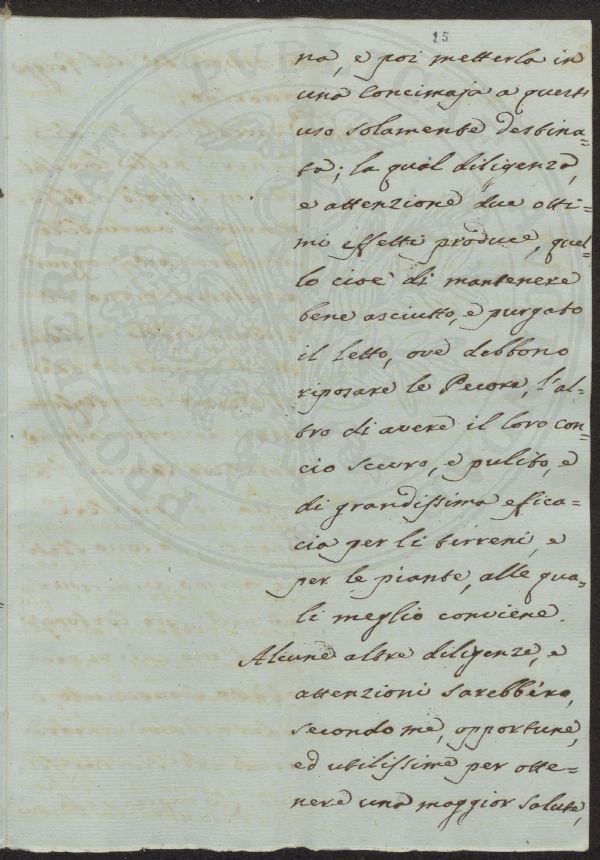 15
na, e poi metterla in
una Concimaja a questi
uso solamente destina=
ta; la qual diligenza,
e attenzione due otti=
mi effetti produce, quel=
lo cioè di mantenere
bene asciutto, e purgato
il letto, ove debbono
riposare le Pecore, l'al=
tro di avere il loro con=
cio scevro, e pulito, e
di grandissima effica=
cia per li terreni, e
per le piante, alle qua=
li meglio conviene.
Alcune altre diligenze, e
attenzioni sarebbero,
secondo me, opportune,
ed utilissime per otte=
nere una maggior salute,
PROSPERITATI PVBLICAE